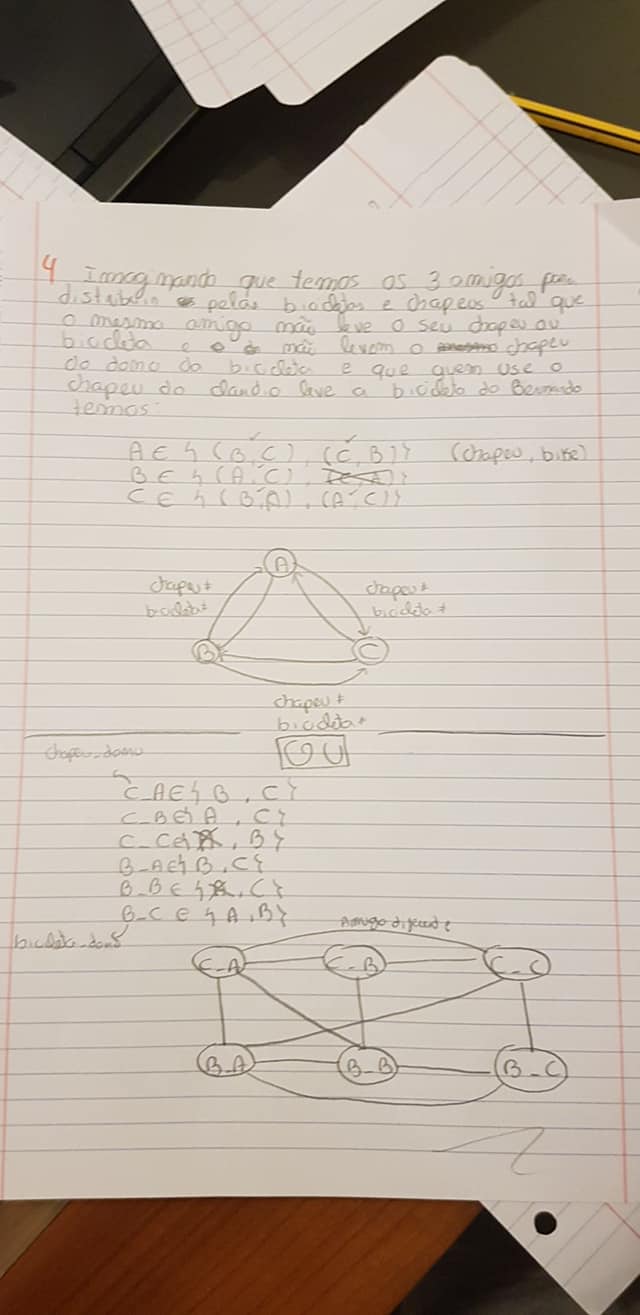 4 Imaginando que temos os 3 amigos para
distribuir pelas bicicletas e chapeos tal que
o mesmo amigo não leve o seu chapeu ou
bicicleta e não levem o chapeu
do dono da bicicleta e que quem use o
chapeu do claudio leve a bicicleta do Bernardo
temos:
A ∈ {(B,C), (C,B)} (chapeu, bike)
B ∈ {(A,C), (C,A)}
C ∈ {(B,A), (A,C)}
A
chapeu ≠ chapeu ≠
bicicleta ≠ bicicleta ≠
B C
chapeu ≠
bicicleta ≠
chapeu_dono OU
C_A ∈ {B, C}
C_B ∈ {A, C}
C_C ∈ {A, B}
B_A ∈ {B, C}
B_B ∈ {A, C}
B_C ∈ {A, B}
bicicleta_dono Amigo diferente
C_A C_B C_C
B_A B_B B_C